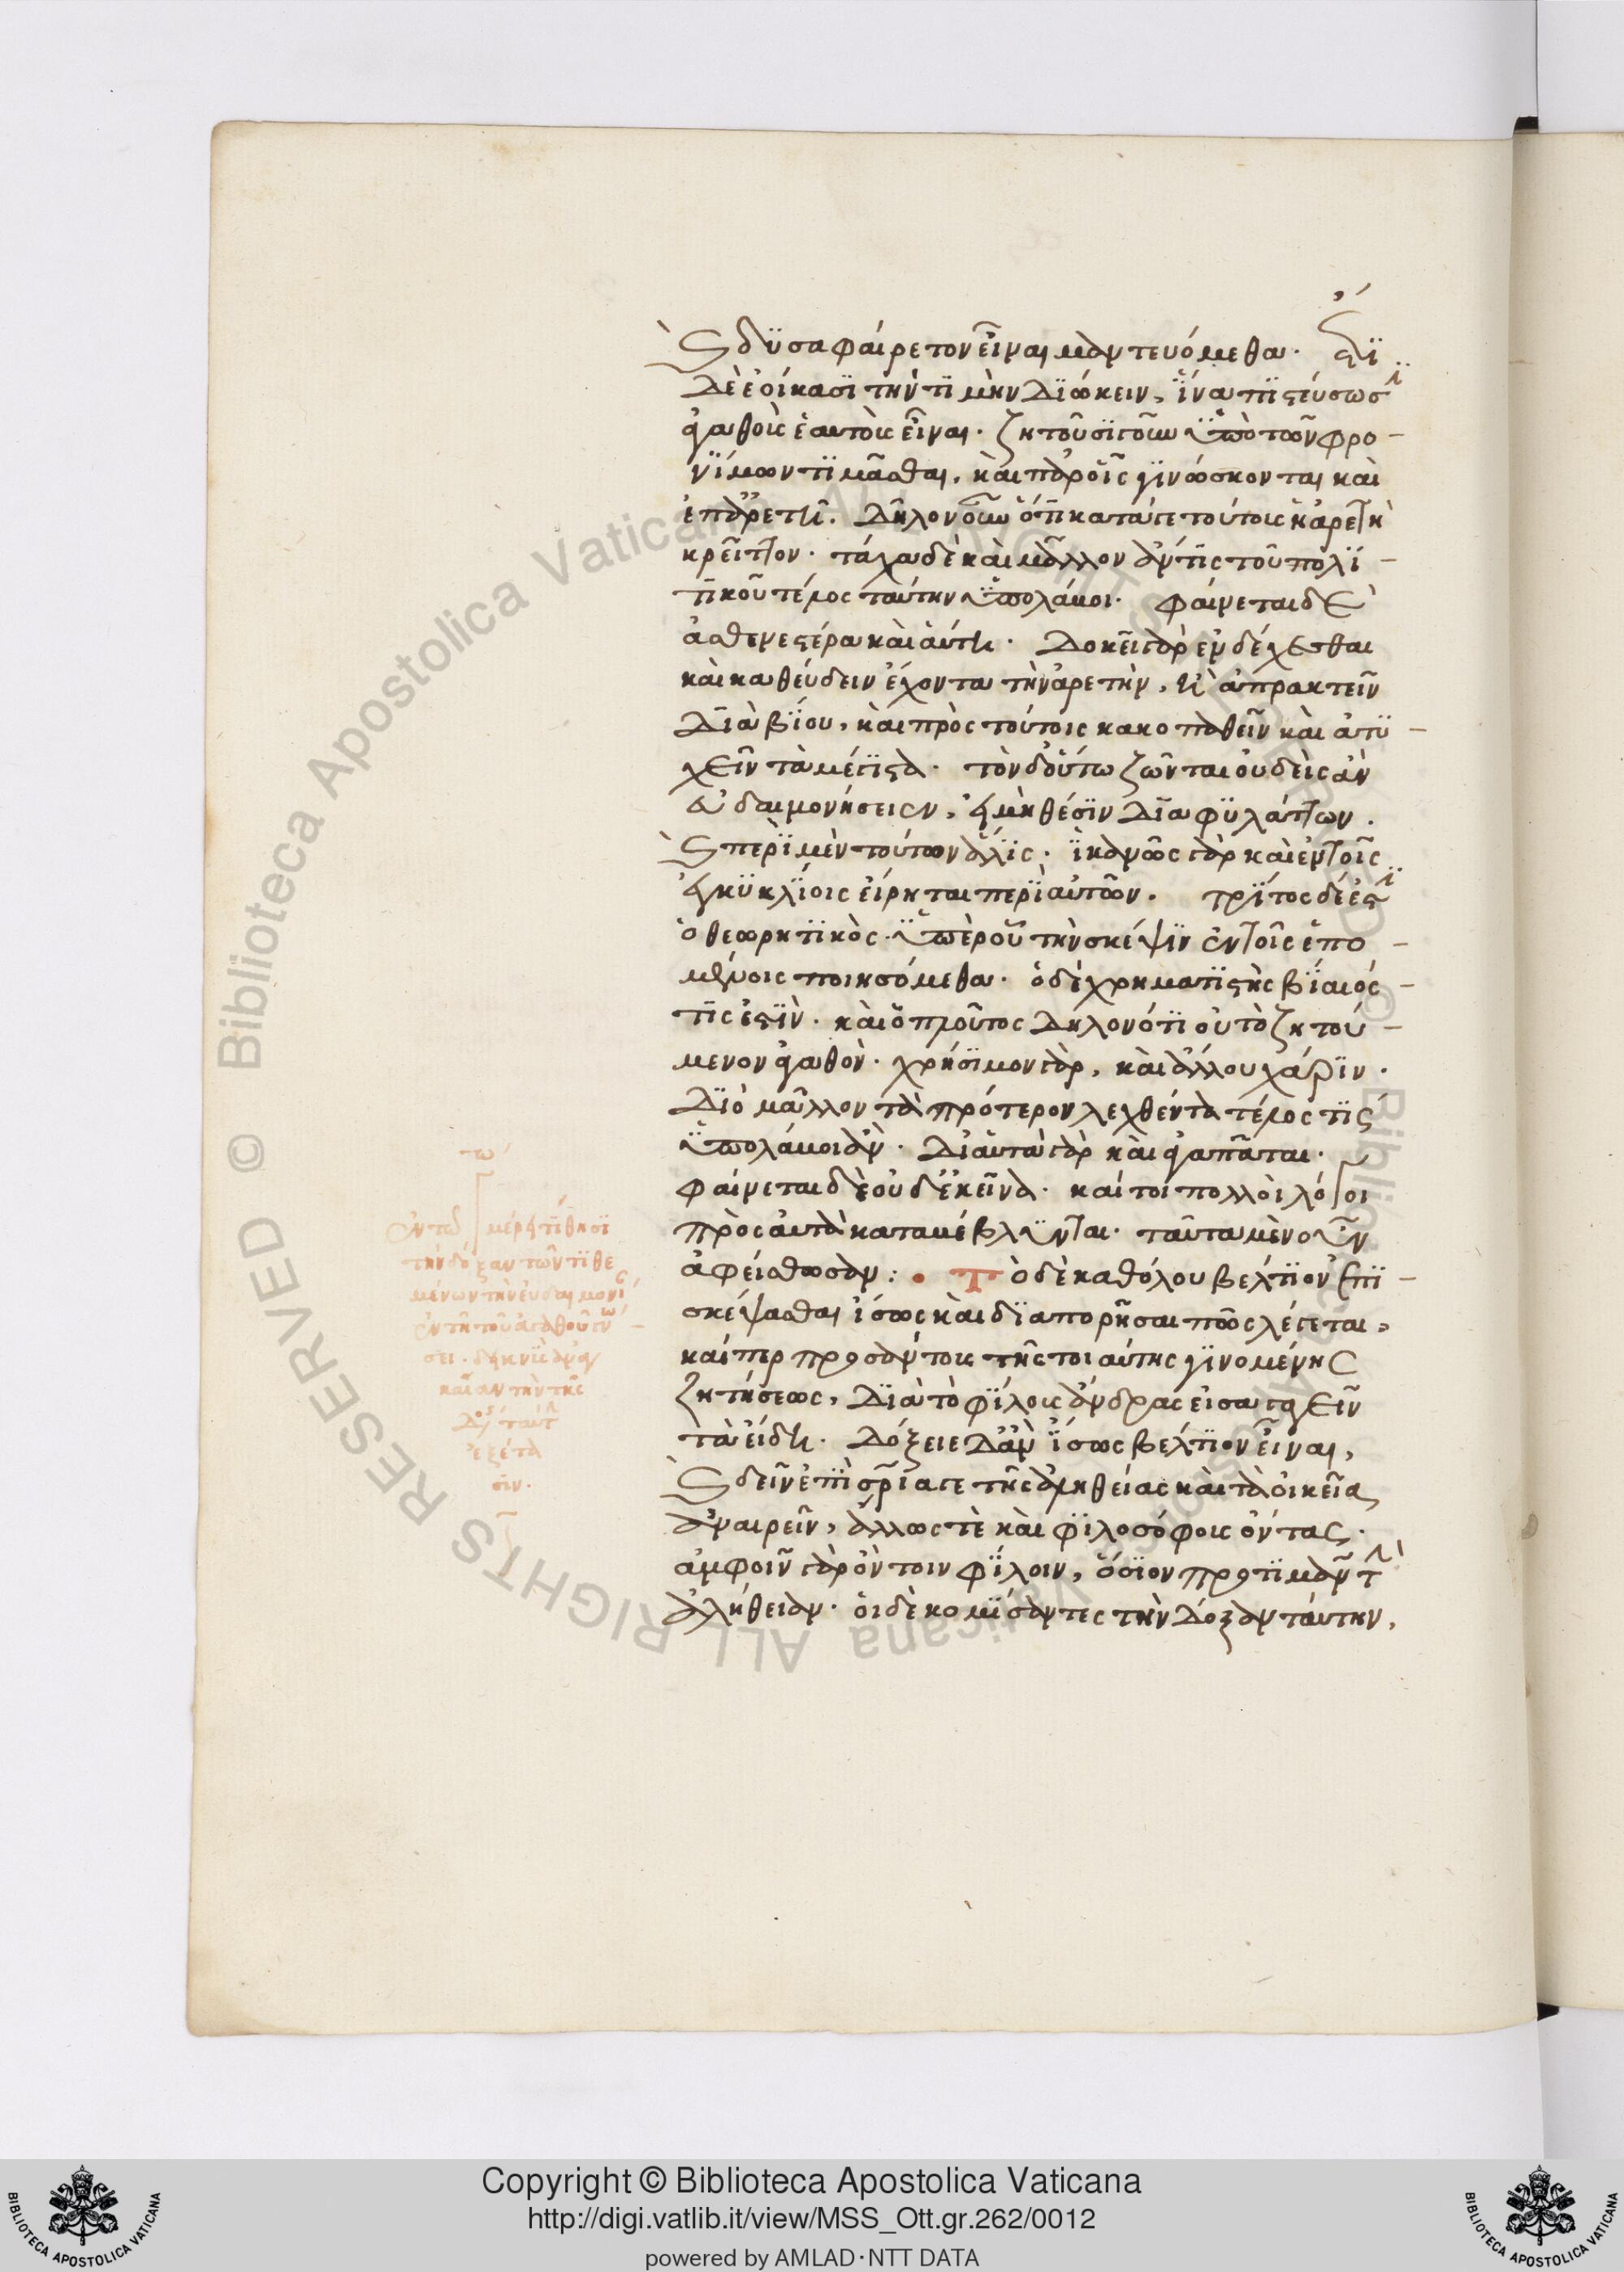 καὶ δυσαφαίρετον εἶναι μαντευόμεθα. ἔτι
δὲ ἐοίκασι τὴν τιμὴν διώκειν, ἵνα πιστεύσωσι
ἀγαθοὺς ἑαυτοὺς εἶναι. ζητοῦσι γοῦν ὑπὸ τῶν φρο-
νίμων τιμᾶσθαι, καὶ παρ' οἷς γινώσκονται καὶ
ἐπ' ἀρετῇ. δῆλον οὖν ὅτι κατά γε τούτους ἡ ἀρετὴ
κρεῖττον. τάχα δὲ καὶ μᾶλλον ἄν τις τοῦ πολι-
τικοῦ τέλος ταύτην ὑπολάβοι. φαίνεται δὲ
ἀσθενεστέρα καὶ αὕτη. δοκεῖ γὰρ ἐνδέχεσθαι
καὶ καθεύδειν ἔχοντα τὴν ἀρετὴν, ἢ ἀπρακτεῖν
διὰ βίου, καὶ πρὸς τούτοις κακοπαθεῖν καὶ ἀτυ-
χεῖν τὰ μέγιστα. τὸν δ' οὕτω ζῶντα οὐδεὶς ἂν
εὐδαιμονήσειεν, εἰ μὴ θέσιν διαφυλάττων.
καὶ περὶ μὲν τούτων ἅλις. ἱκανῶς γὰρ καὶ ἐν τοῖς
ἐγκυκλίοις εἴρηται περὶ αὐτῶν. τρίτος δέ ἐστι
ὁ θεωρητικὸς. ὑπὲρ οὗ τὴν σκέψιν ἐν τοῖς ἑπο-
μένοις ποιησόμεθα. ὁ δὲ χρηματιστὴς βίαιός
τις ἐστὶν. καὶ ὁ πλοῦτος δῆλον ὅτι οὐ τὸ ζητού-
μενον ἀγαθὸν. χρήσιμον γὰρ, καὶ ἄλλου χάριν.
διὸ μᾶλλον τὰ πρότερον λεχθέντα τέλος τις
ὑπολάβοι ἂν. δι' αὑτὰ γὰρ καὶ ἀγαπᾶται.
φαίνεται δὲ οὐδ' ἐκεῖνα. καίτοι πολλοὶ λόγοι
πρὸς αὐτὰ καταβέβληνται. ταῦτα μὲν οὖν
ἀφείσθωσαν: • Τὸ δὲ καθόλου βέλτιον ἐπι-
σκέψασθαι ἴσως καὶ διαπορῆσαι πῶς λέγεται,
καίπερ προσάντους τῆς τοιαύτης γινομένης
ζητήσεως, διὰ τὸ φίλους ἄνδρας εἰσαγαγεῖν
τὰ εἴδη. δόξειε δ' ἂν ἴσως βέλτιον εἶναι,
καὶ δεῖν ἐπὶ σωτηρίᾳ γε τῆς ἀληθείας καὶ τὰ οἰκεῖα
ἀναιρεῖν, ἄλλως τὲ καὶ φιλοσόφους ὄντας.
ἀμφοῖν γὰρ ὄντοιν φίλοιν, ὅσιον προτιμᾶν τὴν
ἀλήθειαν. οἱ δὲ κομίσαντες τὴν δόξαν ταύτην,
τὴν δόξαν τῶν τιθε
μένων τὴν εὐδαιμονί